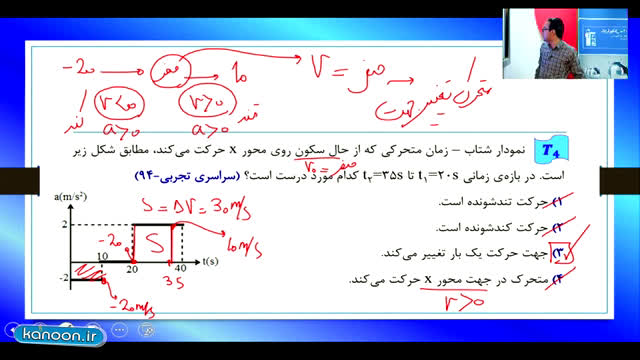 -20 → صفر → 10
V = صفر → متحرک تغییر جهت
V<0 V>0
کند a>0 a>0 تند
T4
نمودار شتاب – زمان متحرکی که از حال سکون روی محور x حرکت می‌کند، مطابق شکل زیر
V₀ = صفر
است. در بازه‌ی زمانی t₁=۲۰s تا t₂=۳۵s کدام مورد درست است؟ (سراسری تجربی-۹۴)
۱) حرکت تندشونده است.
۲) حرکت کندشونده است.
۳) جهت حرکت یک بار تغییر می‌کند.
۴) متحرک در جهت محور x حرکت می‌کند.
V>0
a(m/s²)
S = ΔV = 30 m/s
2
-20
S
10 m/s
10
20
40
t(s)
35
-2
-20 m/s
kanoon.ir